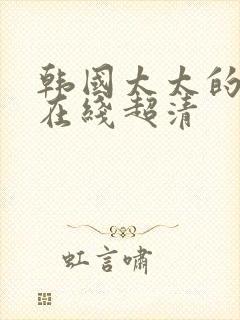 韩國太太的
在綫超清
虹言啸